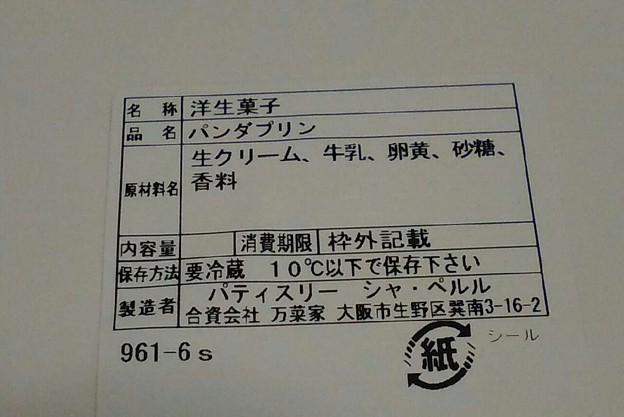 名 称 洋生菓子
品 名 パンダプリン
原材料名 生クリーム、牛乳、卵黄、砂糖、
香料
内容量 消費期限 枠外記載
保存方法 要冷蔵 10℃以下で保存下さい
製造者 パティスリー シャ・ペルル
合資会社 万菜家 大阪市生野区巽南3-16-2
961-6s
紙
シール